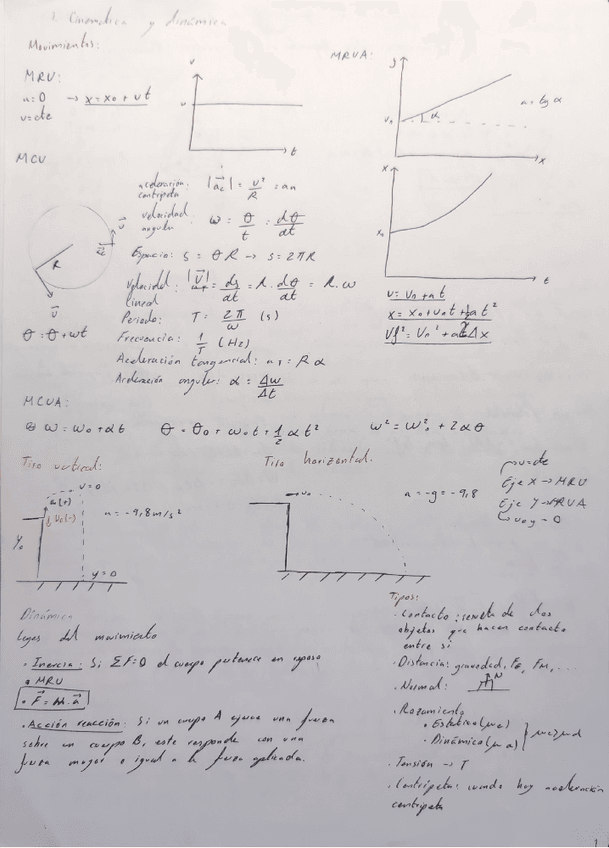 1. Cinematica y dinámica
Movimientos:
MRU:
a=0 → x = x₀ + v t
v=cte
v
v
t
MRUA:
v₀
α
a = tg α
x
x
x₀
t
v = v₀ + at
x = x₀ + v₀t + ½ a t²
MCU
R
v
θ = θ + wt
aceleración centripeta: |ac| = v²/R = an
velocidad angular w = θ/t = dθ/dt
Espacio: s = θ R → s = 2πR
Velocidad lineal |v| = ds/dt = R · dθ/dt = R · w
Periodo: T = 2π/w (s)
Frecuencia: 1/T (Hz)
Aceleración tangencial: aT = R α
Aceleración angular: α = Δw/Δt
MCUA:
w = w₀ + αt θ = θ₀ + w₀t + ½ αt² w² = w²₀ + 2αθ
Tiro vertical:
v=0
a = -9,8 m/s²
y₀
y=0
Tiro horizontal.
v₀
a = -g = -9,8
v=cte
Eje X → MRU
Eje Y → MRUA
v₀y = 0
Dinámica
Leyes del movimiento
· Inercia: Si ΣF=0 el cuerpo permanece en reposo
· MRU
· F = m · a
· Acción reacción: Si un cuerpo A ejerce una fuerza
sobre un cuerpo B, este responde con una
fuerza mayor o igual a la fuerza aplicada.
Tipos:
· Contacto: de dos
objetos que hacen contacto
entre sí
· Distancia: gravedad, Fe, Fm, ...
· Normal: N
· Rozamiento
· Estático (μe)
· Dinámico (μd) } μe>μd
· Tensión → T
· Centripeta: cuando hay aceleración
centripeta
1